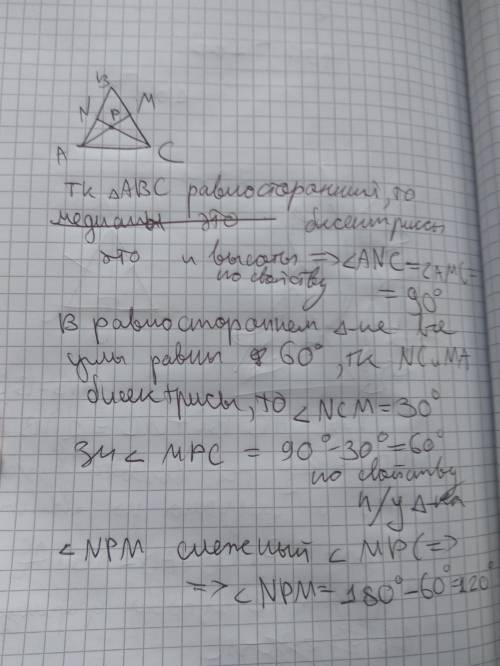 B
N
P
M
A
C
тк △ABC равносторонний, то
медианы это бисектрисы
это и высоты => ∠ANC = ∠AMC =
по свойству
= 90°
В равностороннем △-ке все
углы равны 60°, тк NC и MA
бисектрисы, то ∠NCM = 30°
Зн ∠ MPC = 90° - 30° = 60°
по свойству
п/у △-ка
∠NPM смежный ∠ MPC =>
=> ∠NPM = 180° - 60° = 120°